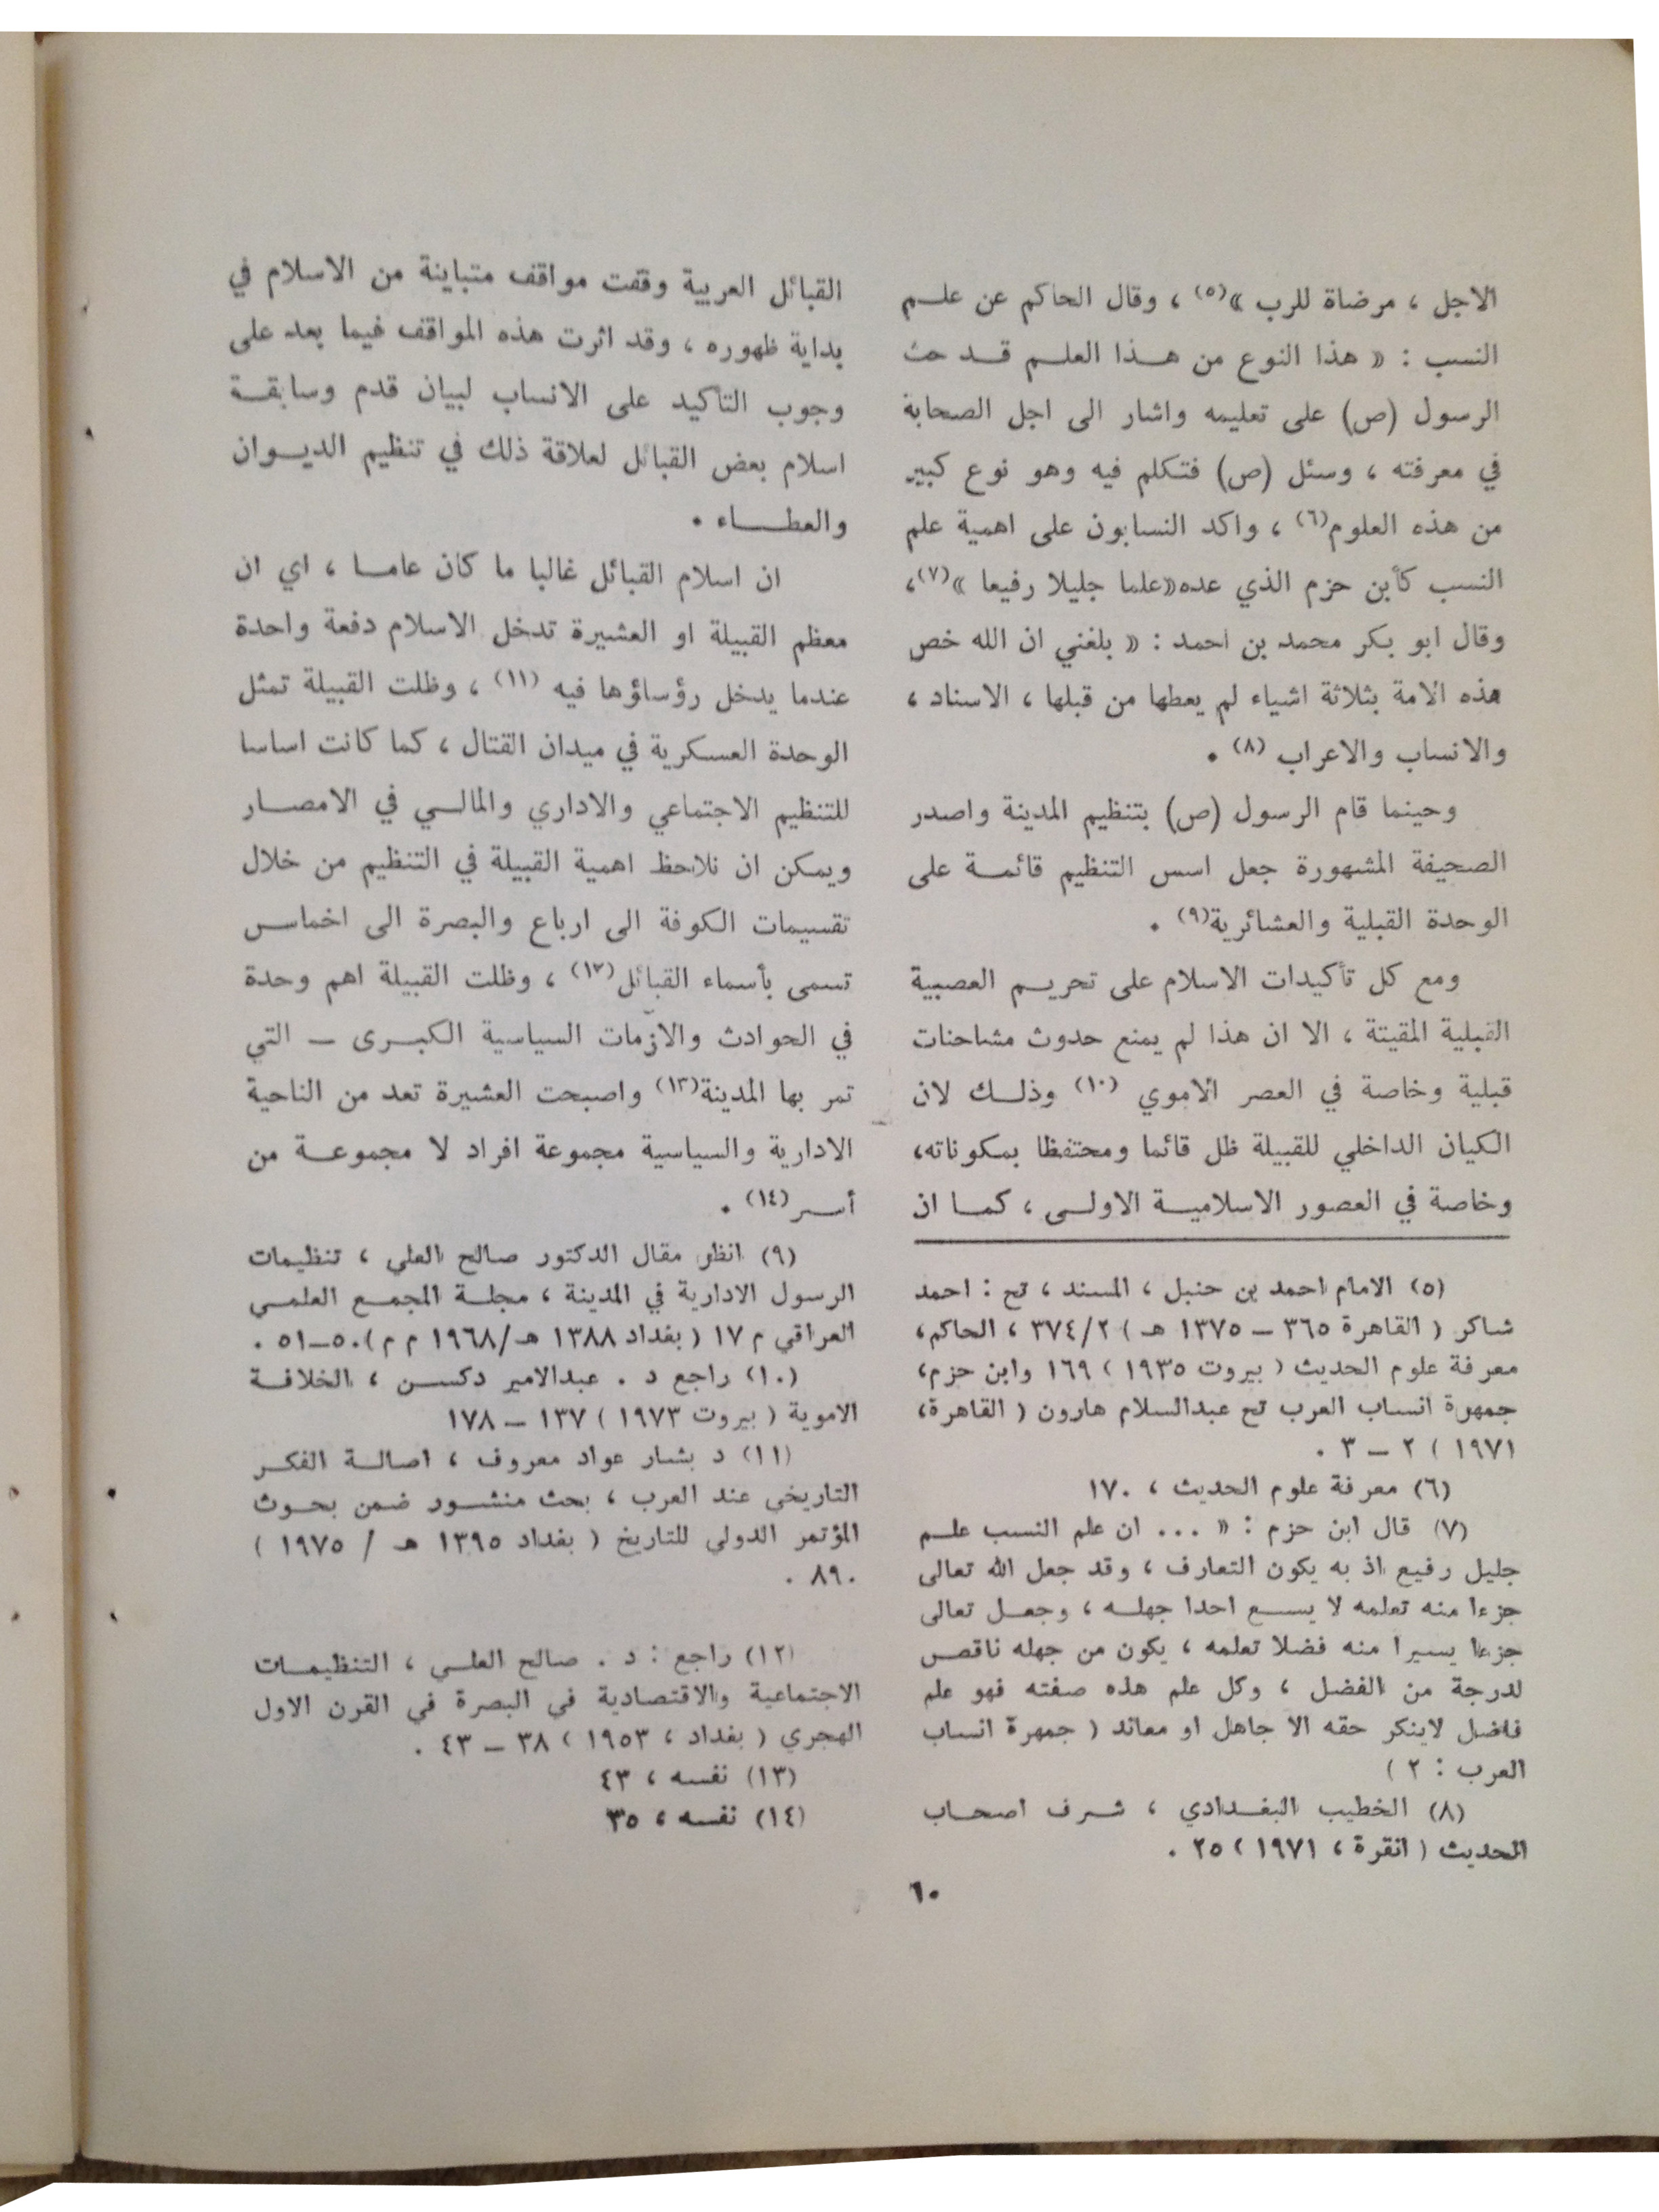 الاجل ، مرضاة للرب »(٥) ، وقال الحاكم عن علـم
النسب : « هذا النوع من هـذا العلـم قـد حث
الرسول (ص) على تعليمه واشار الى اجل الصحابة
في معرفته ، وسئل (ص) فتكلم فيه وهو نوع كبير
من هذه العلوم(٦) ، واكد النسابون على اهمية علم
النسب كأبن حزم الذي عده«علما جليلا رفيعا »(٧)،
وقال ابو بكر محمد بن احمد : « بلغني ان الله خص
هذه الامة بثلاثة اشياء لم يعطها من قبلها ، الاسناد ،
والانساب والاعراب (٨) .
وحينما قام الرسول (ص) بتنظيم المدينة واصدر
الصحيفة المشهورة جعل اسس التنظيم قائمـة على
الوحدة القبلية والعشائرية(٩) .
ومع كل تأكيدات الاسلام على تحريـم العصبية
القبلية المقيتة ، الا ان هذا لم يمنع حدوث مشاحنات
قبلية وخاصة في العصر الأموي (١٠) وذلـك لان
الكيان الداخلي للقبيلة ظل قائما ومحتفظا بمكوناته،
وخاصة في العصور الاسلاميـة الاولـى ، كمـا ان
(٥) الامام احمد بن حنبل ، المسند ، تح : احمد
شاكر ( القاهرة ٣٦٥ – ١٣٧٥ هـ ) ٣٧٤/٢ ، الحاكم،
معرفة علوم الحديث ( بيروت ١٩٣٥ ) ١٦٩ وابن حزم،
جمهرة انساب العرب تح عبدالسلام هارون ( القاهرة،
١٩٧١ ) ٢ – ٣ .
(٦) معرفة علوم الحديث ، ١٧٠
(٧) قال ابن حزم : « ... ان علم النسب علـم
جليل رفيع اذ به يكون التعارف ، وقد جعل الله تعالى
جزءا منه تعلمه لا يسـع احدا جهلـه ، وجعـل تعالى
جزءا يسيرا منه فضلا تعلمه ، يكون من جهله ناقص
لدرجة من الفضل ، وكل علم هذه صفته فهو علم
فاضل لاينكر حقه الا جاهل او معاند ( جمهرة انساب
العرب : ٢ )
(٨) الخطيب البغـدادي ، شـرف اصحـاب
الحديث ( انقرة ، ١٩٧١ ) ٢٥ .
القبائل العربية وقفت مواقف متباينة من الاسلام في
بداية ظهوره ، وقد اثرت هذه المواقف فيما بعد على
وجوب التأكيد على الانساب لبيان قدم وسابقـة
اسلام بعض القبائل لعلاقة ذلك في تنظيم الديـوان
والعطـاء .
ان اسلام القبائل غالبا ما كان عامـا ، اي ان
معظم القبيلة او العشيرة تدخل الاسلام دفعة واحدة
عندما يدخل رؤساؤها فيه (١١) ، وظلت القبيلة تمثل
الوحدة العسكرية في ميدان القتال ، كما كانت اساسا
للتنظيم الاجتماعي والاداري والمالـي في الامصـار
ويمكن ان نلاحظ اهمية القبيلة في التنظيم من خلال
تقسيمات الكوفة الى ارباع والبصرة الى اخماس
تسمى بأسماء القبائل(١٢) ، وظلت القبيلة اهم وحدة
في الحوادث والازمات السياسية الكبـرى – التي
تمر بها المدينة(١٣) واصبحت العشيرة تعد من الناحية
الادارية والسياسية مجموعة افراد لا مجموعـة من
أسـر (١٤) .
(٩) انظر مقال الدكتور صالح العلي ، تنظيمات
الرسول الادارية في المدينة ، مجلـة المجمـع العلمـي
العراقي م ١٧ ( بغداد ١٣٨٨ هـ/١٩٦٨ م م ) ٥٠–٥١ .
(١٠) راجع د . عبدالامير دكسـن ، الخلافـة
الاموية ( بيروت ١٩٧٣ ) ١٣٧ – ١٧٨
(١١) د بشار عواد معروف ، اصالـة الفكـر
التاريخي عند العرب ، بحث منشـور ضمن بحـوث
المؤتمر الدولي للتاريخ ( بغداد ١٣٩٥ هـ / ١٩٧٥ )
٨٩٠ .
(١٢) راجع : د . صالح العلـي ، التنظيمـات
الاجتماعية والاقتصادية في البصرة في القرن الاول
الهجري ( بغداد ، ١٩٥٣ ) ٣٨ – ٤٣ .
(١٣) نفسه ، ٤٣
(١٤) نفسه ، ٣٥
٦٠